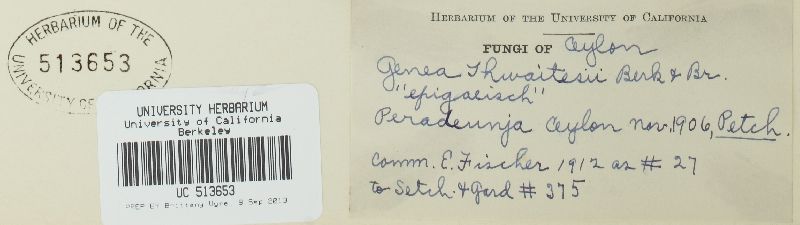 HERBARIUM OF THE
513653
UNIVERSITY OF CALIFORNIA
UNIVERSITY HERBARIUM
University of California
Berkeley
UC 513653
PREP BY Brittany Ugre 9 Sep 2013
HERBARIUM OF THE UNIVERSITY OF CALIFORNIA
FUNGI OF Ceylon
Genea Thwaitesii Berk & Br.
"epigaeisch"
Peradeunja Ceylon nov. 1906, Petch.
comm. E. Fischer 1912 as # 27
to Setch. & Gard # 375